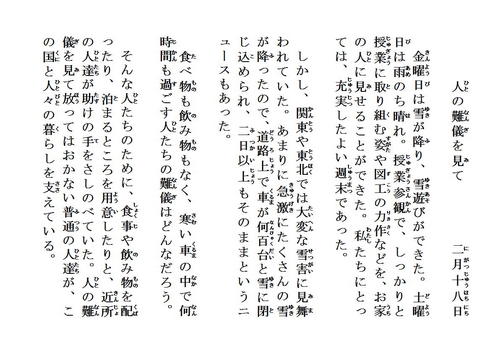 人の難儀を見て　二月十八日
金曜日は雪が降り、雪遊びができた。土曜
日は雨のち晴れ。授業参観で、しっかりと
授業に取り組む姿や図工の力作などを、お家
の人に見せることができた。私たちにとっ
ては、充実したよい週末であった。
しかし、関東や東北では大変な雪害に見舞
われていた。あまりに急激にたくさんの雪
が降ったので、道路上で車が何百台と雪に閉
じ込められ、二日以上もそのままというニ
ュースもあった。
食べ物も飲み物もなく、寒い車の中で何
時間も過ごす人たちの難儀はどんなだろう。
そんな人たちのために、食事や飲み物を配
ったり、泊まるところを用意したりと、近所
の人達が助けの手をさしのべていた。人の難
儀を見て放ってはおかない普通の人達が、こ
の国と人々の暮らしを支えている。